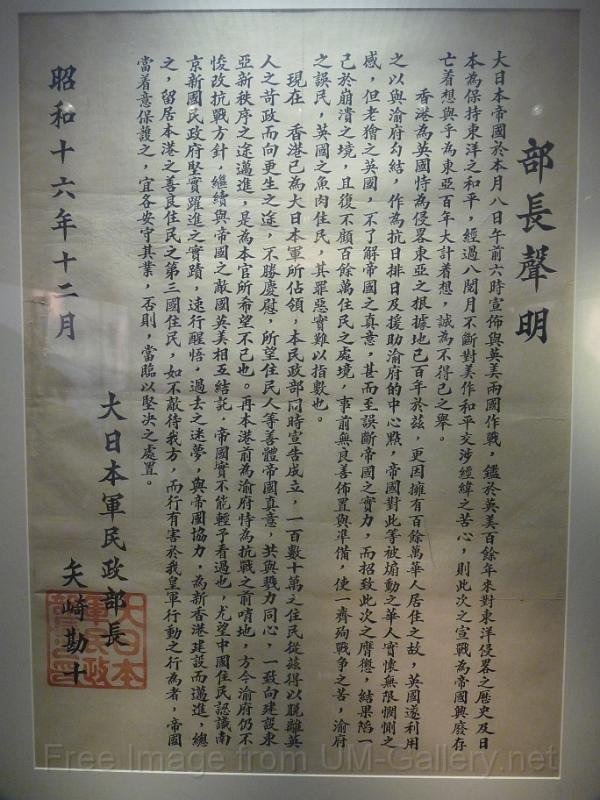 部長聲明
大日本帝國於本月八日午前六時宣佈與英美兩國作戰，鑑於英美百餘年來對東洋侵畧之歷史及日
本為保持東洋之和平，經過八閱月不斷對美作和平交涉經緯之苦心，則此次之宣戰為帝國興廢存
亡着想與乎為東亞百年大計着想，誠為不得已之舉。
香港為英國恃為侵畧東亞之根據地已百年於茲，更因擁有百餘萬華人居住之故，英國遂利用
之以與渝府勾結，作為抗日排日及援助渝府的中心點，帝國對此等被煽動之華人寔懷無限憫惻之
感，但老獪之英國，不了解帝國之真意，甚而至誤斷帝國之實力，而招致此次之膺懲，結果陷一
己於崩潰之境，且復不顧百餘萬住民之處境，事前無良善佈置與準備，使一齊殉戰爭之苦，渝府
之誤民，英國之魚肉住民，其罪惡實難以指數也。
現在　香港已為大日本軍所佔領，本民政部同時宣告成立，一百數十萬之住民從茲得以脫離英
人之苛政而向更生之途，不勝慶慰，所望住民人等善體帝國真意，共與戮力同心，一致向建設東
亞新秩序之途邁進，是為本官所希望不已也。再本港前為渝府恃為抗戰之前哨地，方今渝府仍不
悛改抗戰方針，繼續與帝國之敵國英美相互結託，帝國實不能輕予看過也，尤望中國住民認識南
京新國民政府堅實躍進之實蹟，速行醒悟，過去之迷夢，與帝國協力，為新香港建設而邁進，總
之，留居本港之善良住民之第三國住民，如不敵待我方，而行有害於我皇軍行動之行為者，帝國
當着意保護之，宜各安守其業，否則，當臨以堅決之處置。
昭和十六年十二月
大日本軍民政部長
矢崎勘十
大日本軍民政部長之印
Free Image from UM-Gallery.net